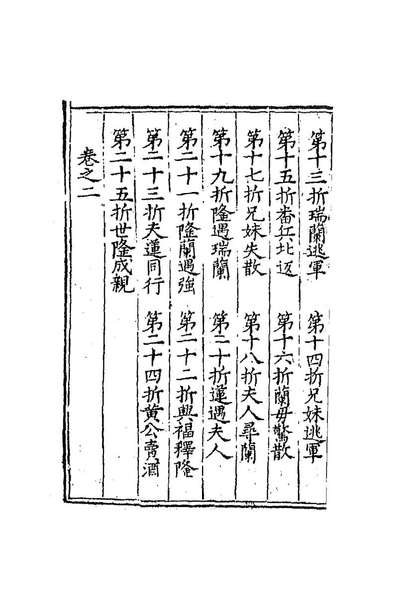 第十三折瑞蘭逃軍　第十四折兄妹逃軍
第十五折番兵北返　第十六折蘭母驚散
第十七折兄妹失散　第十八折夫人尋蘭
第十九折隆遇瑞蘭　第二十折蓮遇夫人
第二十一折隆蘭遇強　第二十二折興福釋隆
第二十三折夫蓮同行　第二十四折黄公賣酒
第二十五折世隆成親
卷之二